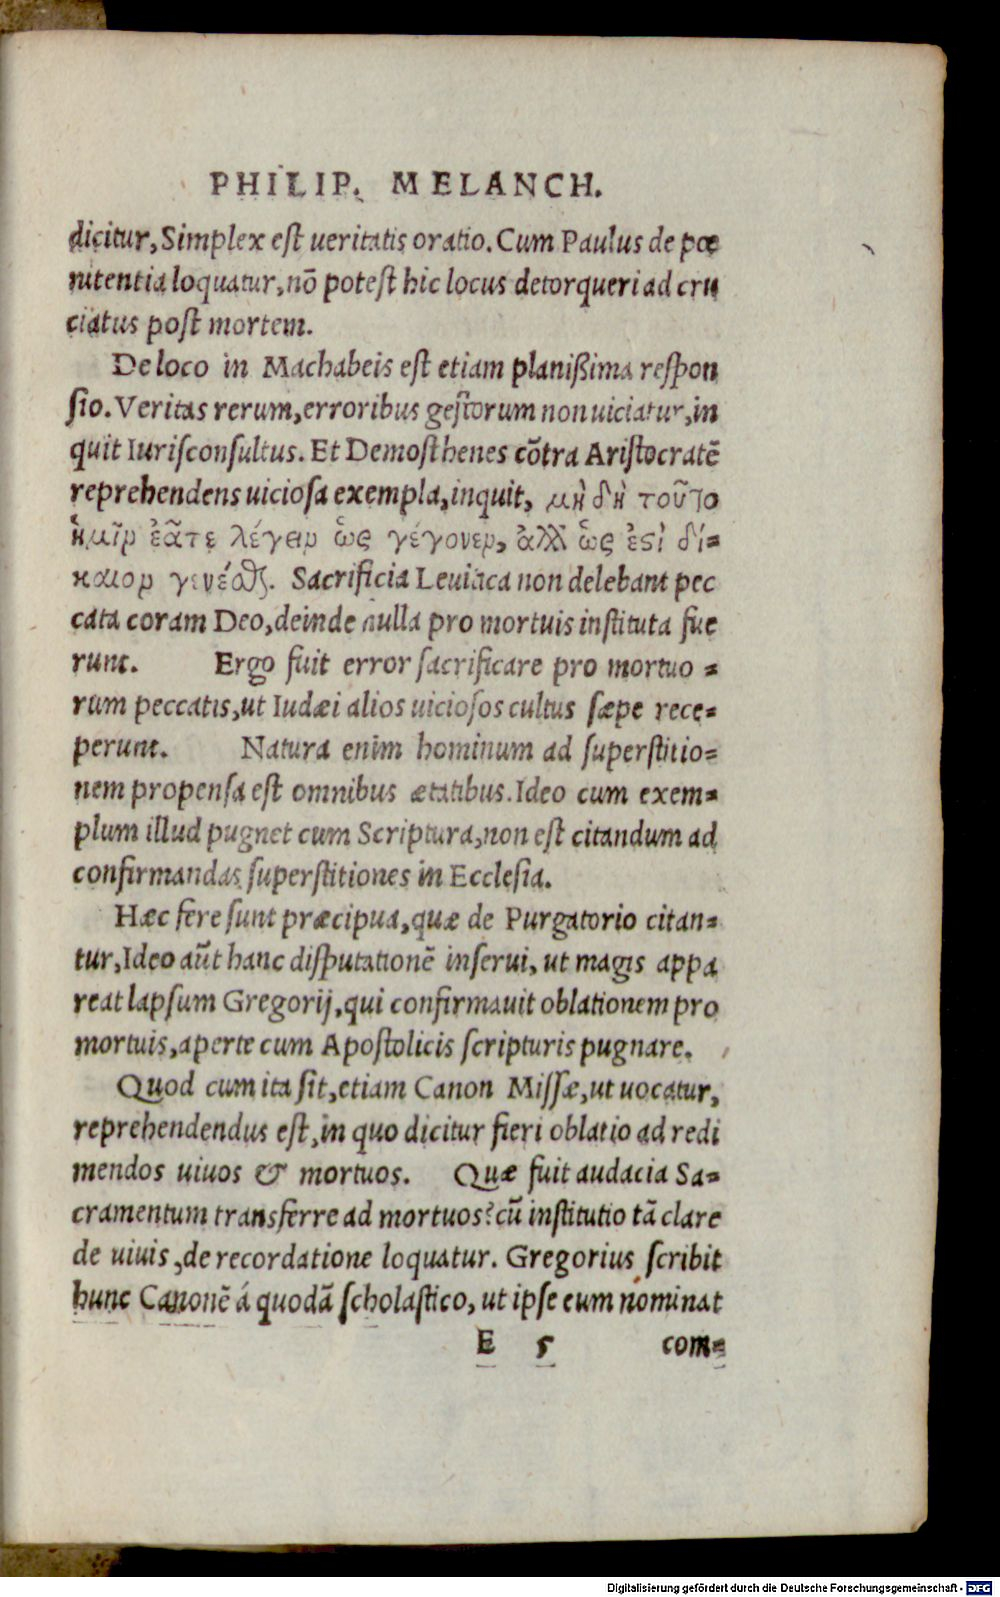 PHILIP. MELANCH.
dicitur, Simplex est ueritatis oratio. Cum Paulus de pœ
nitentia loquatur, nõ potest hic locus detorqueri ad cru
ciatus post mortem.
De loco in Machabeis est etiam planißima respon
sio. Veritas rerum, erroribus gestorum non uiciatur, in
quit Iurisconsultus. Et Demosthenes cõtra Aristocratẽ
reprehendens uiciosa exempla, inquit, μὴ δὴ τοῦτο
ἡμῖν ἐᾶτε λέγειν ὣς γέγονεν, ἀλλ' ὣς ἐστὶ δί=
καιον γενέσθαι. Sacrificia Leuitica non delebant pec
cata coram Deo, deinde nulla pro mortuis instituta fue
runt. Ergo fuit error sacrificare pro mortuo =
rum peccatis, ut Iudæi alios uiciosos cultus sæpe rece=
perunt. Natura enim hominum ad superstitio=
nem propensa est omnibus ætatibus. Ideo cum exem=
plum illud pugnet cum Scriptura, non est citandum ad
confirmandas superstitiones in Ecclesia.
Hæc fere sunt præcipua, quæ de Purgatorio citan=
tur, Ideo aũt hanc disputationẽ inserui, ut magis appa
reat lapsum Gregorij, qui confirmauit oblationem pro
mortuis, aperte cum Apostolicis scripturis pugnare.
Quod cum ita sit, etiam Canon Missæ, ut uocatur,
reprehendendus est, in quo dicitur fieri oblatio ad redi
mendos uiuos & mortuos. Quæ fuit audacia Sa=
cramentum transferre ad mortuos? cũ institutio tã clare
de uiuis, de recordatione loquatur. Gregorius scribit
hunc Canonẽ á quodã scholastico, ut ipse eum nominat
E 5 com=
Digitalisierung gefördert durch die Deutsche Forschungsgemeinschaft - DFG